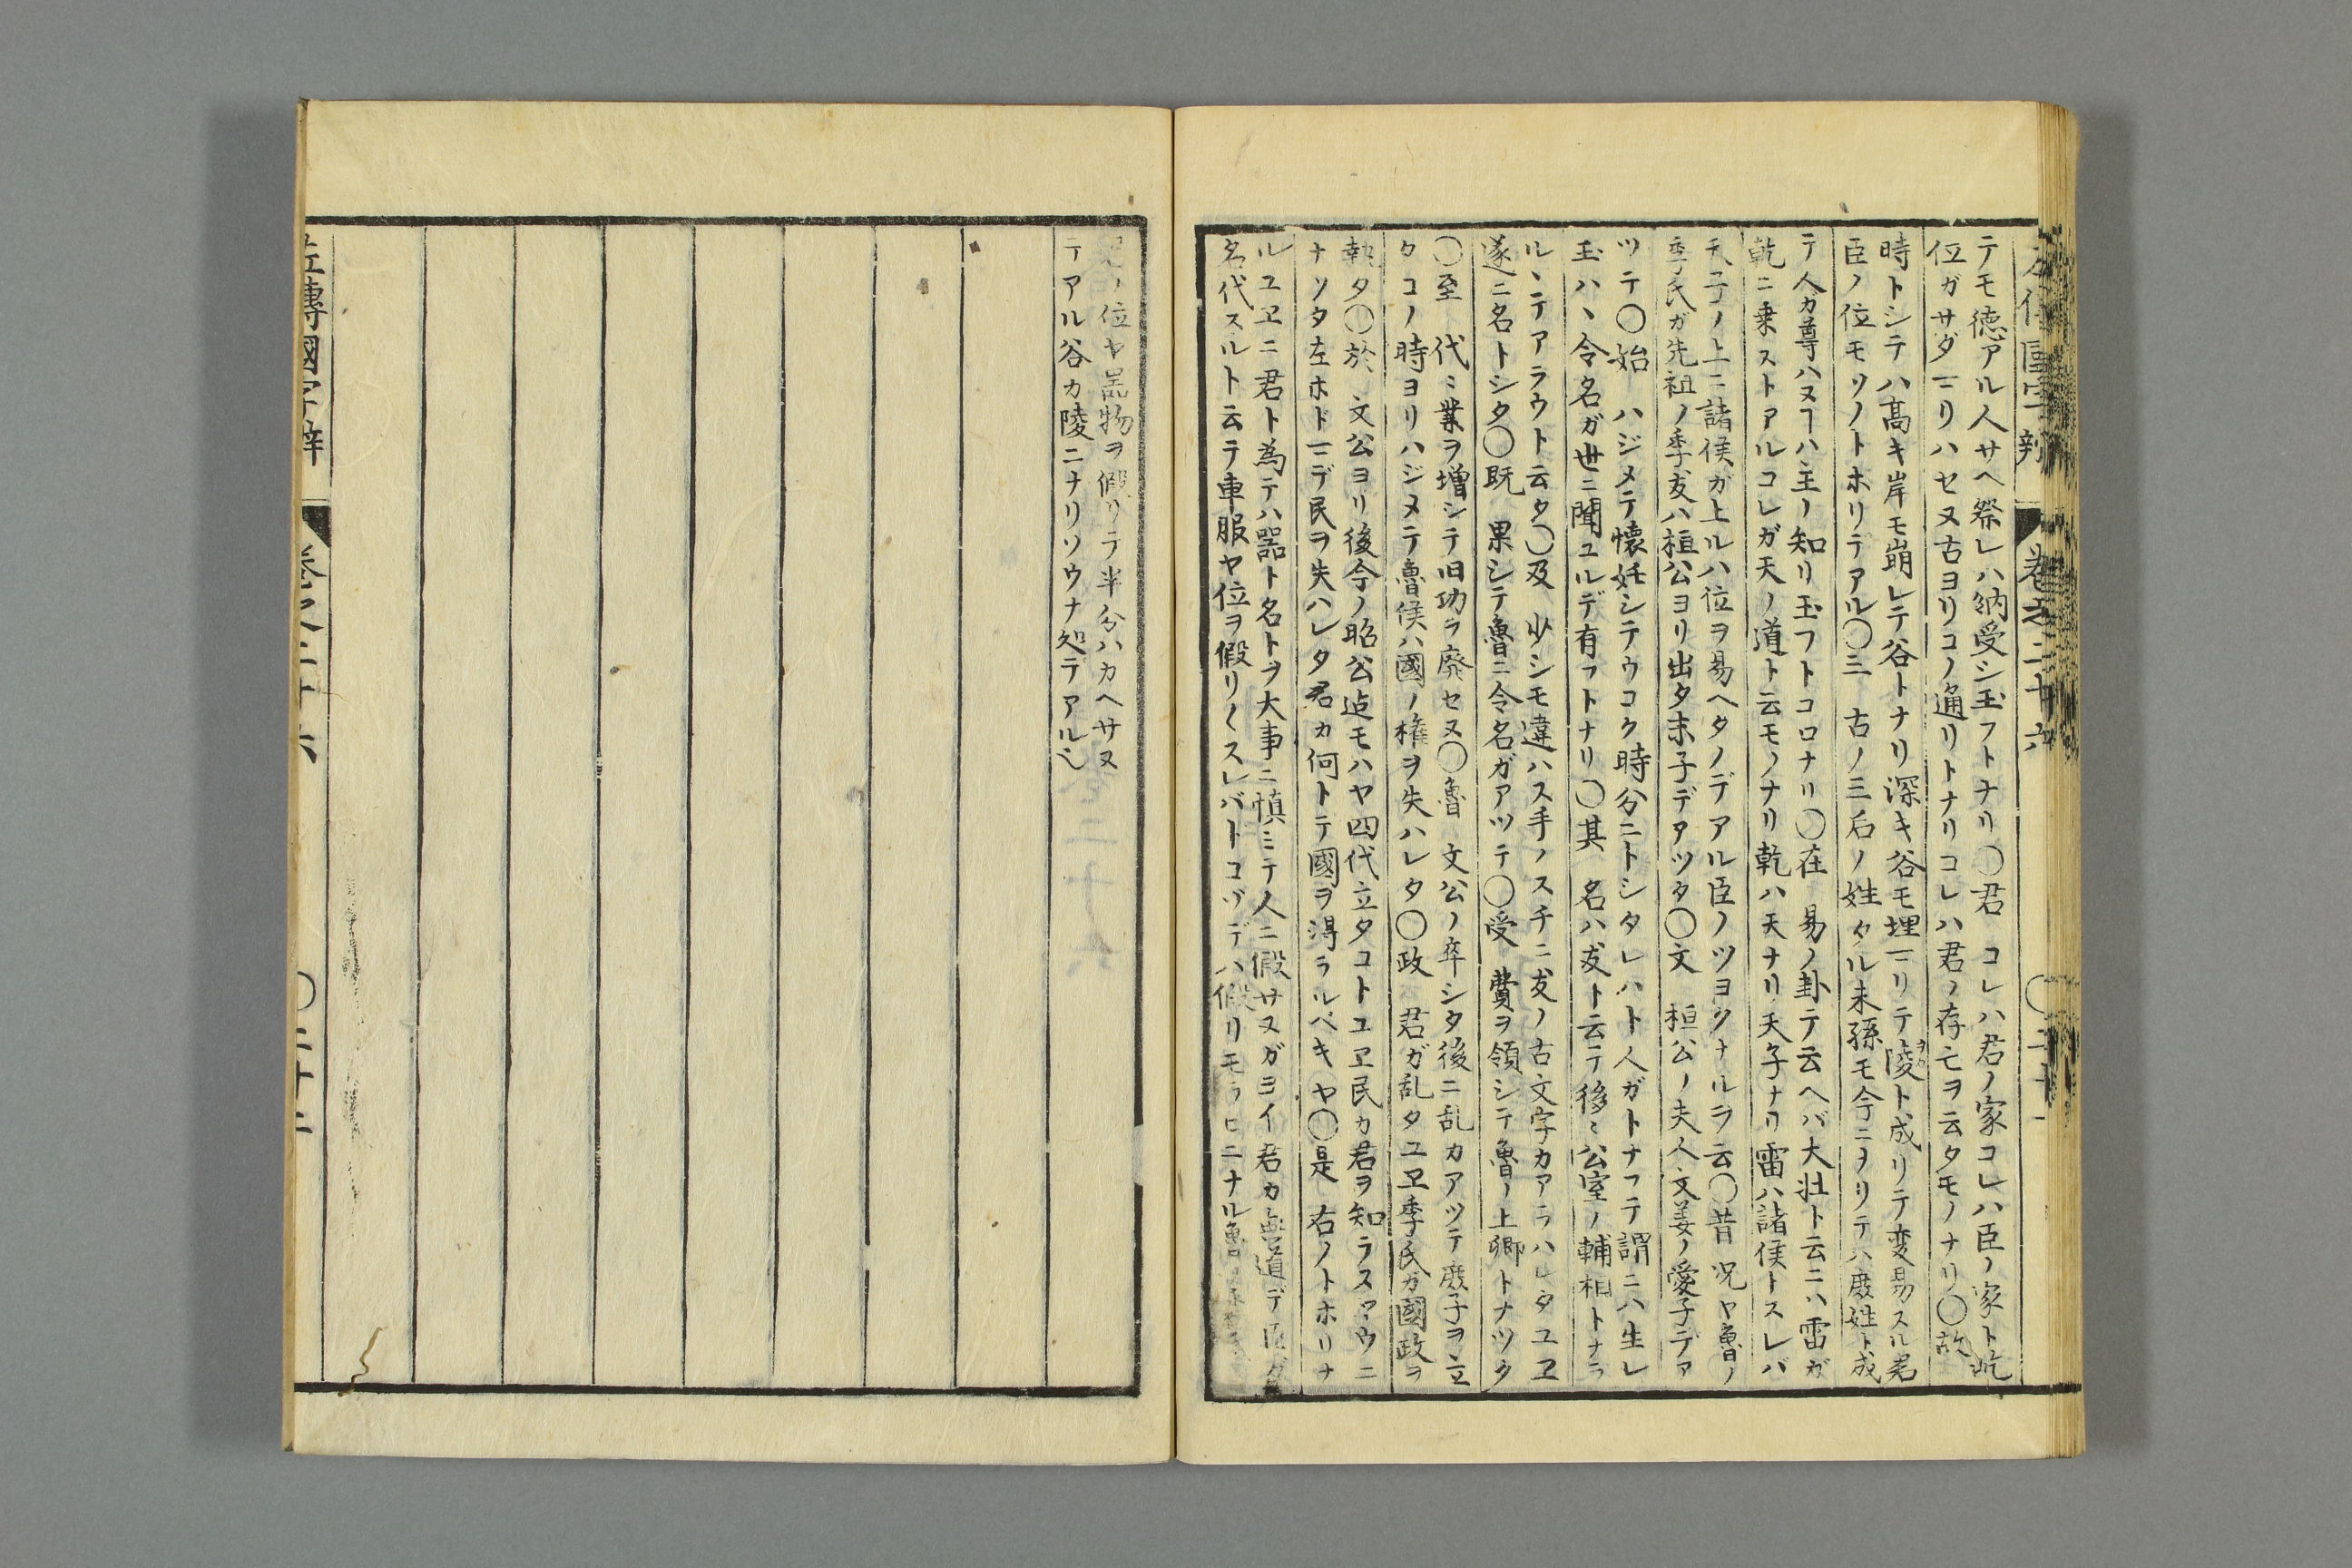 左傳國字辨 巻之二十六 ○二十一
テモ徳アル人サヘ祭レハ納受シ玉フトナリ○君 コレハ君ノ家コレハ臣ノ家ト屹
位ガサダマリハセヌ古ヨリコノ通リトナリコレハ君ノ存亡ヲ云タモノナリ○故
時トシテハ髙キ岸モ崩レテ谷トナリ深キ谷モ埋マリテ陵ト成リテ変易スル君
臣ノ位モソノトホリテアル○三 古ノ三后ノ姓タル末孫モ今ニヲリテハ庶姓ト成
テ人カ尊ハヌヿハ主ノ知リ玉フトコロナリ○在 易ノ卦テ云ヘバ大壮ト云ニハ雷ガ
乾ニ乗ストアルコレガ天ノ道ト云モノナリ乾ハ天ナリ天子ナリ雷ハ諸侯トスレバ
天子ノ上ニ諸侯ガ上ルハ位ヲ易ヘタノデアル臣ノツヨクナルヲ云○昔 况ヤ魯ノ
季氏ガ先祖ノ季友ハ桓公ヨリ出タ末子デアツタ○文 桓公ノ夫人文姜ノ愛子デア
ツテ○始 ハジメテ懐妊シテウコク時分ニトシタレハト人ガトナフテ謂ニハ生レ
玉ハヽ令名ガ世ニ聞ユルデ有フトナリ○其 名ハ友ト云テ後ニ公室ノ輔相トナラ
ルヽテアラウト云タ○及 少シモ違ハス手ノスチニ友ノ古文字カアラハレタユヱ
遂ニ名トシタ○既 果シテ魯ニ令名ガアツテ○受 費ヲ領シテ魯ノ上卿トナツタ
○至 代ミ業ヲ増シテ旧功ヲ廃セヌ○魯 文公ノ卒シタ後ニ乱カアツテ庶子ヲ立
タコノ時ヨリハジメテ魯侯ハ國ノ権ヲ失ハレタ○政 君ガ乱タユヱ季氏ガ國政ヲ
執タ○於 文公ヨリ後今ノ昭公迠モハヤ四代立タコトユヱ民カ君ヲ知ラスマウニ
ナツタ左ホトマデ民ヲ失ハレタ君カ何トテ國ヲ得ラルベキヤ○是 右ノトホリナ
ルユヱニ君ト為テハ噐ト名トヲ大事ニ慎ミテ人ニ假サヌガヨイ君カ無道デ臣ガ
名代スルト云テ車服ヤ位ヲ假リ〱スレバトコゾデハ假リモラヒニナル魯
ノ位ヤ噐物ヲ假リテ半分ハカヘサヌ
テアル谷カ陵ニナリソウナ処デアルヘシ
左傳國字辨 巻之二十六 ○二十二